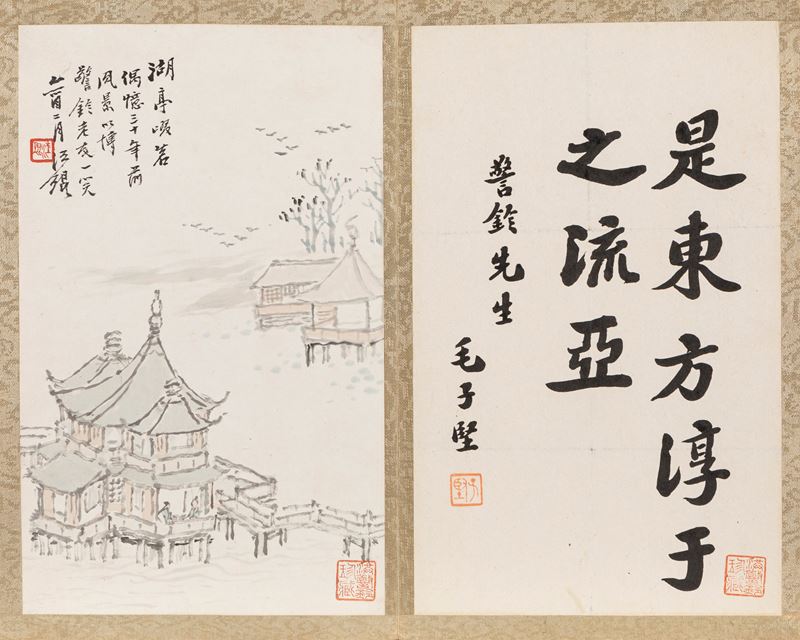 是東方淳于
之流亞
警鈴先生
毛子堅
子堅
湖亭啜茗
偶憶三十年前
風景以博
警鈴老友一笑
乙酉二月